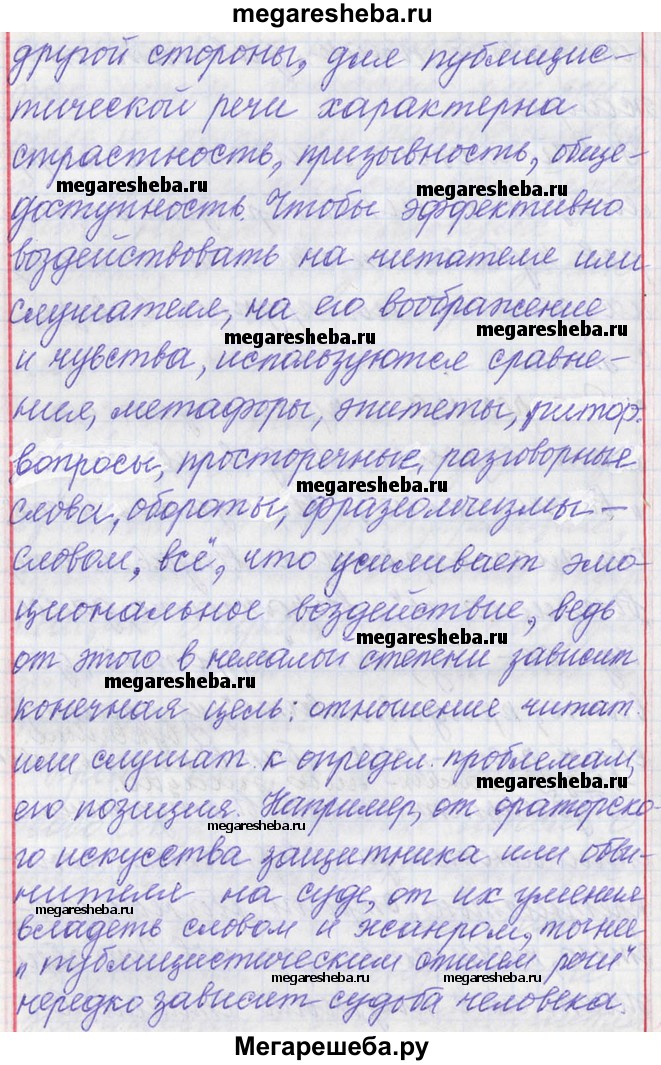 megaresheba.ru
другой стороны, для публицис-
тической речи характерна
страстность, призывность, обще-
megaresheba.ru
megaresheba.ru
доступность. Чтобы эффективно
воздействовать на читателя или
слушателя, на его воображение
megaresheba.ru
megaresheba.ru
и чувства, используются сравне-
ния, метафоры, эпитеты, ритор.
вопросы, просторечные, разговорные
megaresheba.ru
слова, обороты, фразеологизмы –
словом, всё, что усиливает эмо-
циональное воздействие, ведь
megaresheba.ru
от этого в немалой степени зависит
megaresheba.ru
конечная цель: отношение читат.
или слушат. к определ. проблемам,
megaresheba.ru
его позиция. Например, от ораторско-
megaresheba.ru
го искусства защитника или обви-
нителя на суде, от их умения
megaresheba.ru
владеть словом и жанром, точнее
„публицистическим стилем речи"
megaresheba.ru
megaresheba.ru
нередко зависит судьба человека.
Мегарешеба.ру